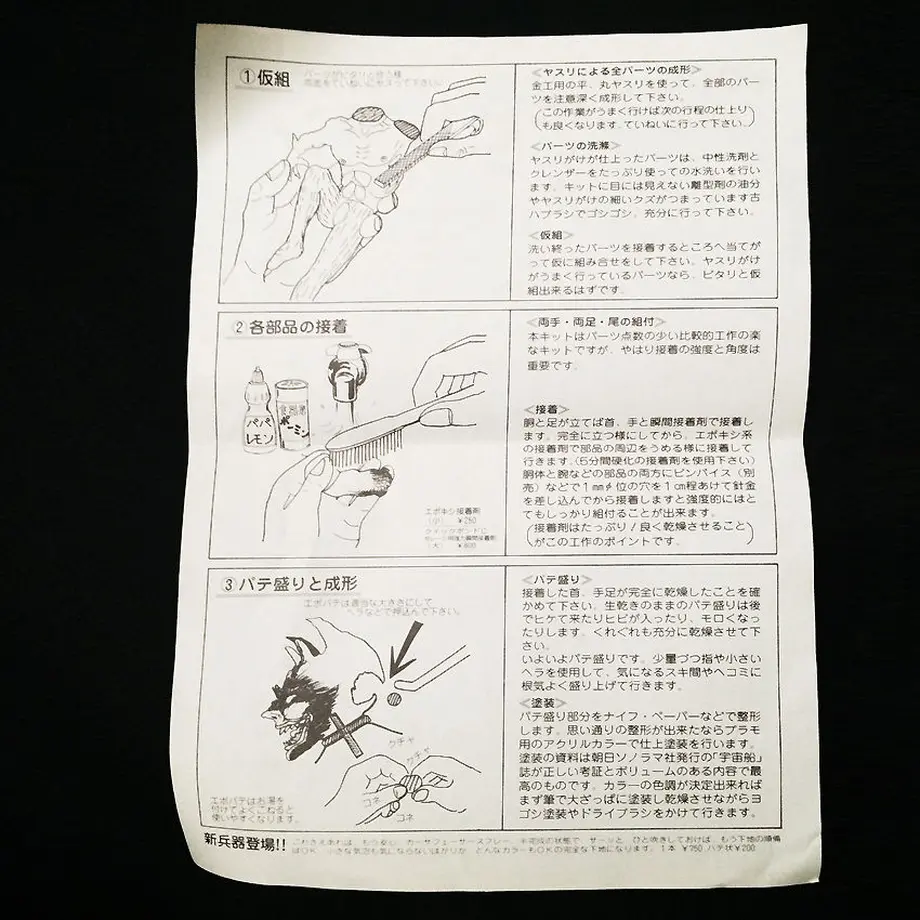 ①仮組
両面をていねいにヤスって下さい。
≪ヤスリによる全パーツの成形≫
金工用の平、丸ヤスリを使って、全部のパー
ツを注意深く成形して下さい。
(この作業がうまく行けば次の行程の仕上り
も良くなります。ていねいに行って下さい。)
≪パーツの洗滌≫
ヤスリがけが仕上ったパーツは、中性洗剤と
クレンザーをたっぷり使っての水洗いを行い
ます。キットに目には見えない離型剤の油分
やヤスリがけの細いクズがつまっています古
ハブラシでゴシゴシ。充分に行って下さい。
≪仮組≫
洗い終ったパーツを接着するところへ当てが
って仮に組み合せをして下さい。ヤスリがけ
がうまく行っているパーツなら、ピタリと仮
組出来るはずです。
②各部品の接着
パパ
レモン
ボーミン
エポキシ接着剤
(小) ¥250
(大) ¥800
≪両手・両足・尾の組付≫
本キットはパーツ点数の少い比較的工作の楽
なキットですが、やはり接着の強度と角度は
重要です。
≪接着≫
胴と足が立てば首、手と瞬間接着剤で接着し
ます。完全に立つ様にしてから。エポキシ系
の接着剤で部品の周辺をうめる様に接着して
行きます。(5分間硬化の接着剤を使用下さい)
胴体と腕などの部品の両方にピンバイス(別
売)などで1mm∮位の穴を1cm程あけて針金
を差し込んでから接着しますと強度的にはと
てもしっかり組付ることが出来ます。
(接着剤はたっぷり!良く乾燥させること
がこの工作のポイントです。)
③パテ盛りと成形
エポパテは適当な大きさにして
ヘラなどで押込んで下さい。
クチャ
クチャ
コネ
コネ
エポパテはお湯を
付けてよくこねると
使いやすくなります。
≪パテ盛り≫
接着した首、手足が完全に乾燥したことを確
かめて下さい。生乾きのままのパテ盛りは後
でヒケて来たりヒビが入ったり、モロくなっ
たりします。くれぐれも充分に乾燥させて下
さい。
いよいよパテ盛りです。少量づつ指や小さい
ヘラを使用して、気になるスキ間やヘコミに
根気よく盛り上げて行きます。
≪塗装≫
パテ盛り部分をナイフ・ペーパーなどで整形
します。思い通りの整形が出来たならプラモ
用のアクリルカラーで仕上塗装を行います。
塗装の資料は朝日ソノラマ社発行の「宇宙船」
誌が正しい考証とボリュームのある内容で最
高のものです。カラーの色調が決定出来れば
まず筆で大ざっぱに塗装し乾燥させながらヨ
ゴシ塗装やドライブラシをかけて行きます。
新兵器登場!! これさえあれば もう安心 カーサフェーサースプレー 半完成の状態で サーッと ひと吹きしておけば もう下地の準備
はOK 小さな気泡も気にならないばかりか どんなカラーもOKの完全な下地になります。1本 ¥750 パテ状¥200